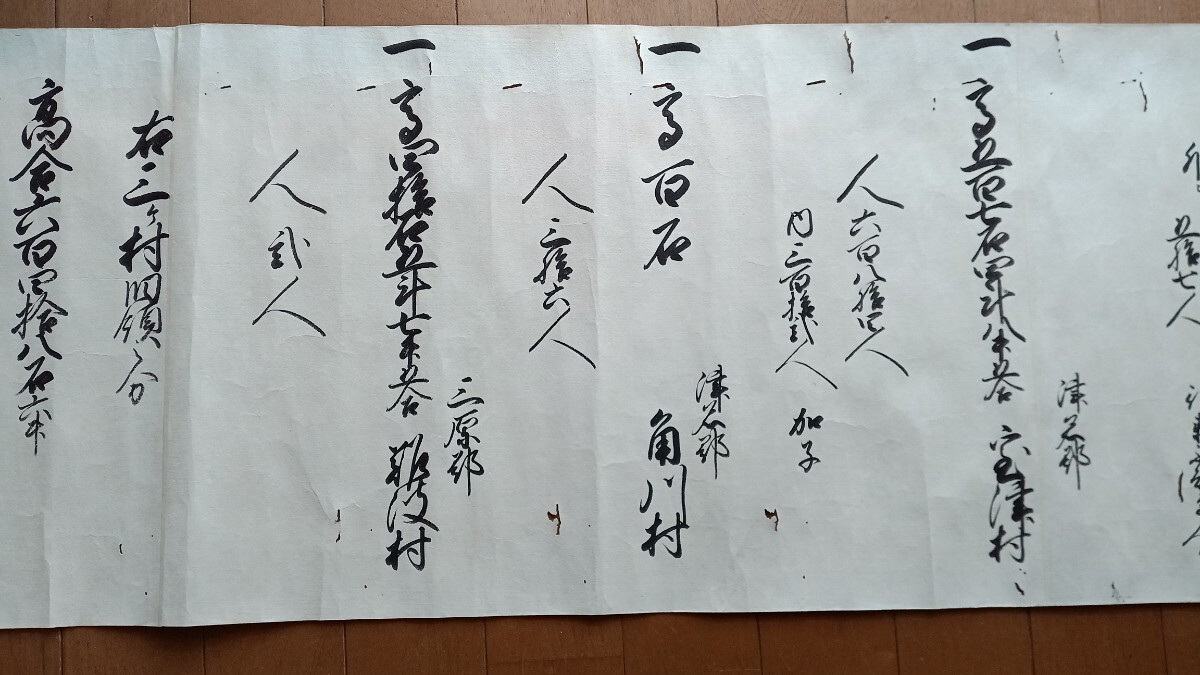 五拾七人
津名郡
一 高五百七石四斗八升五合 室津村
人六百八拾四人
内三百拾弐人 加子
津名郡
一 高百石 角川村
人三拾六人
三原郡
一 高四拾石五斗七升五合 難波村
人弐人
右三ヶ村旧領ノ分
高合六百四拾八石六升